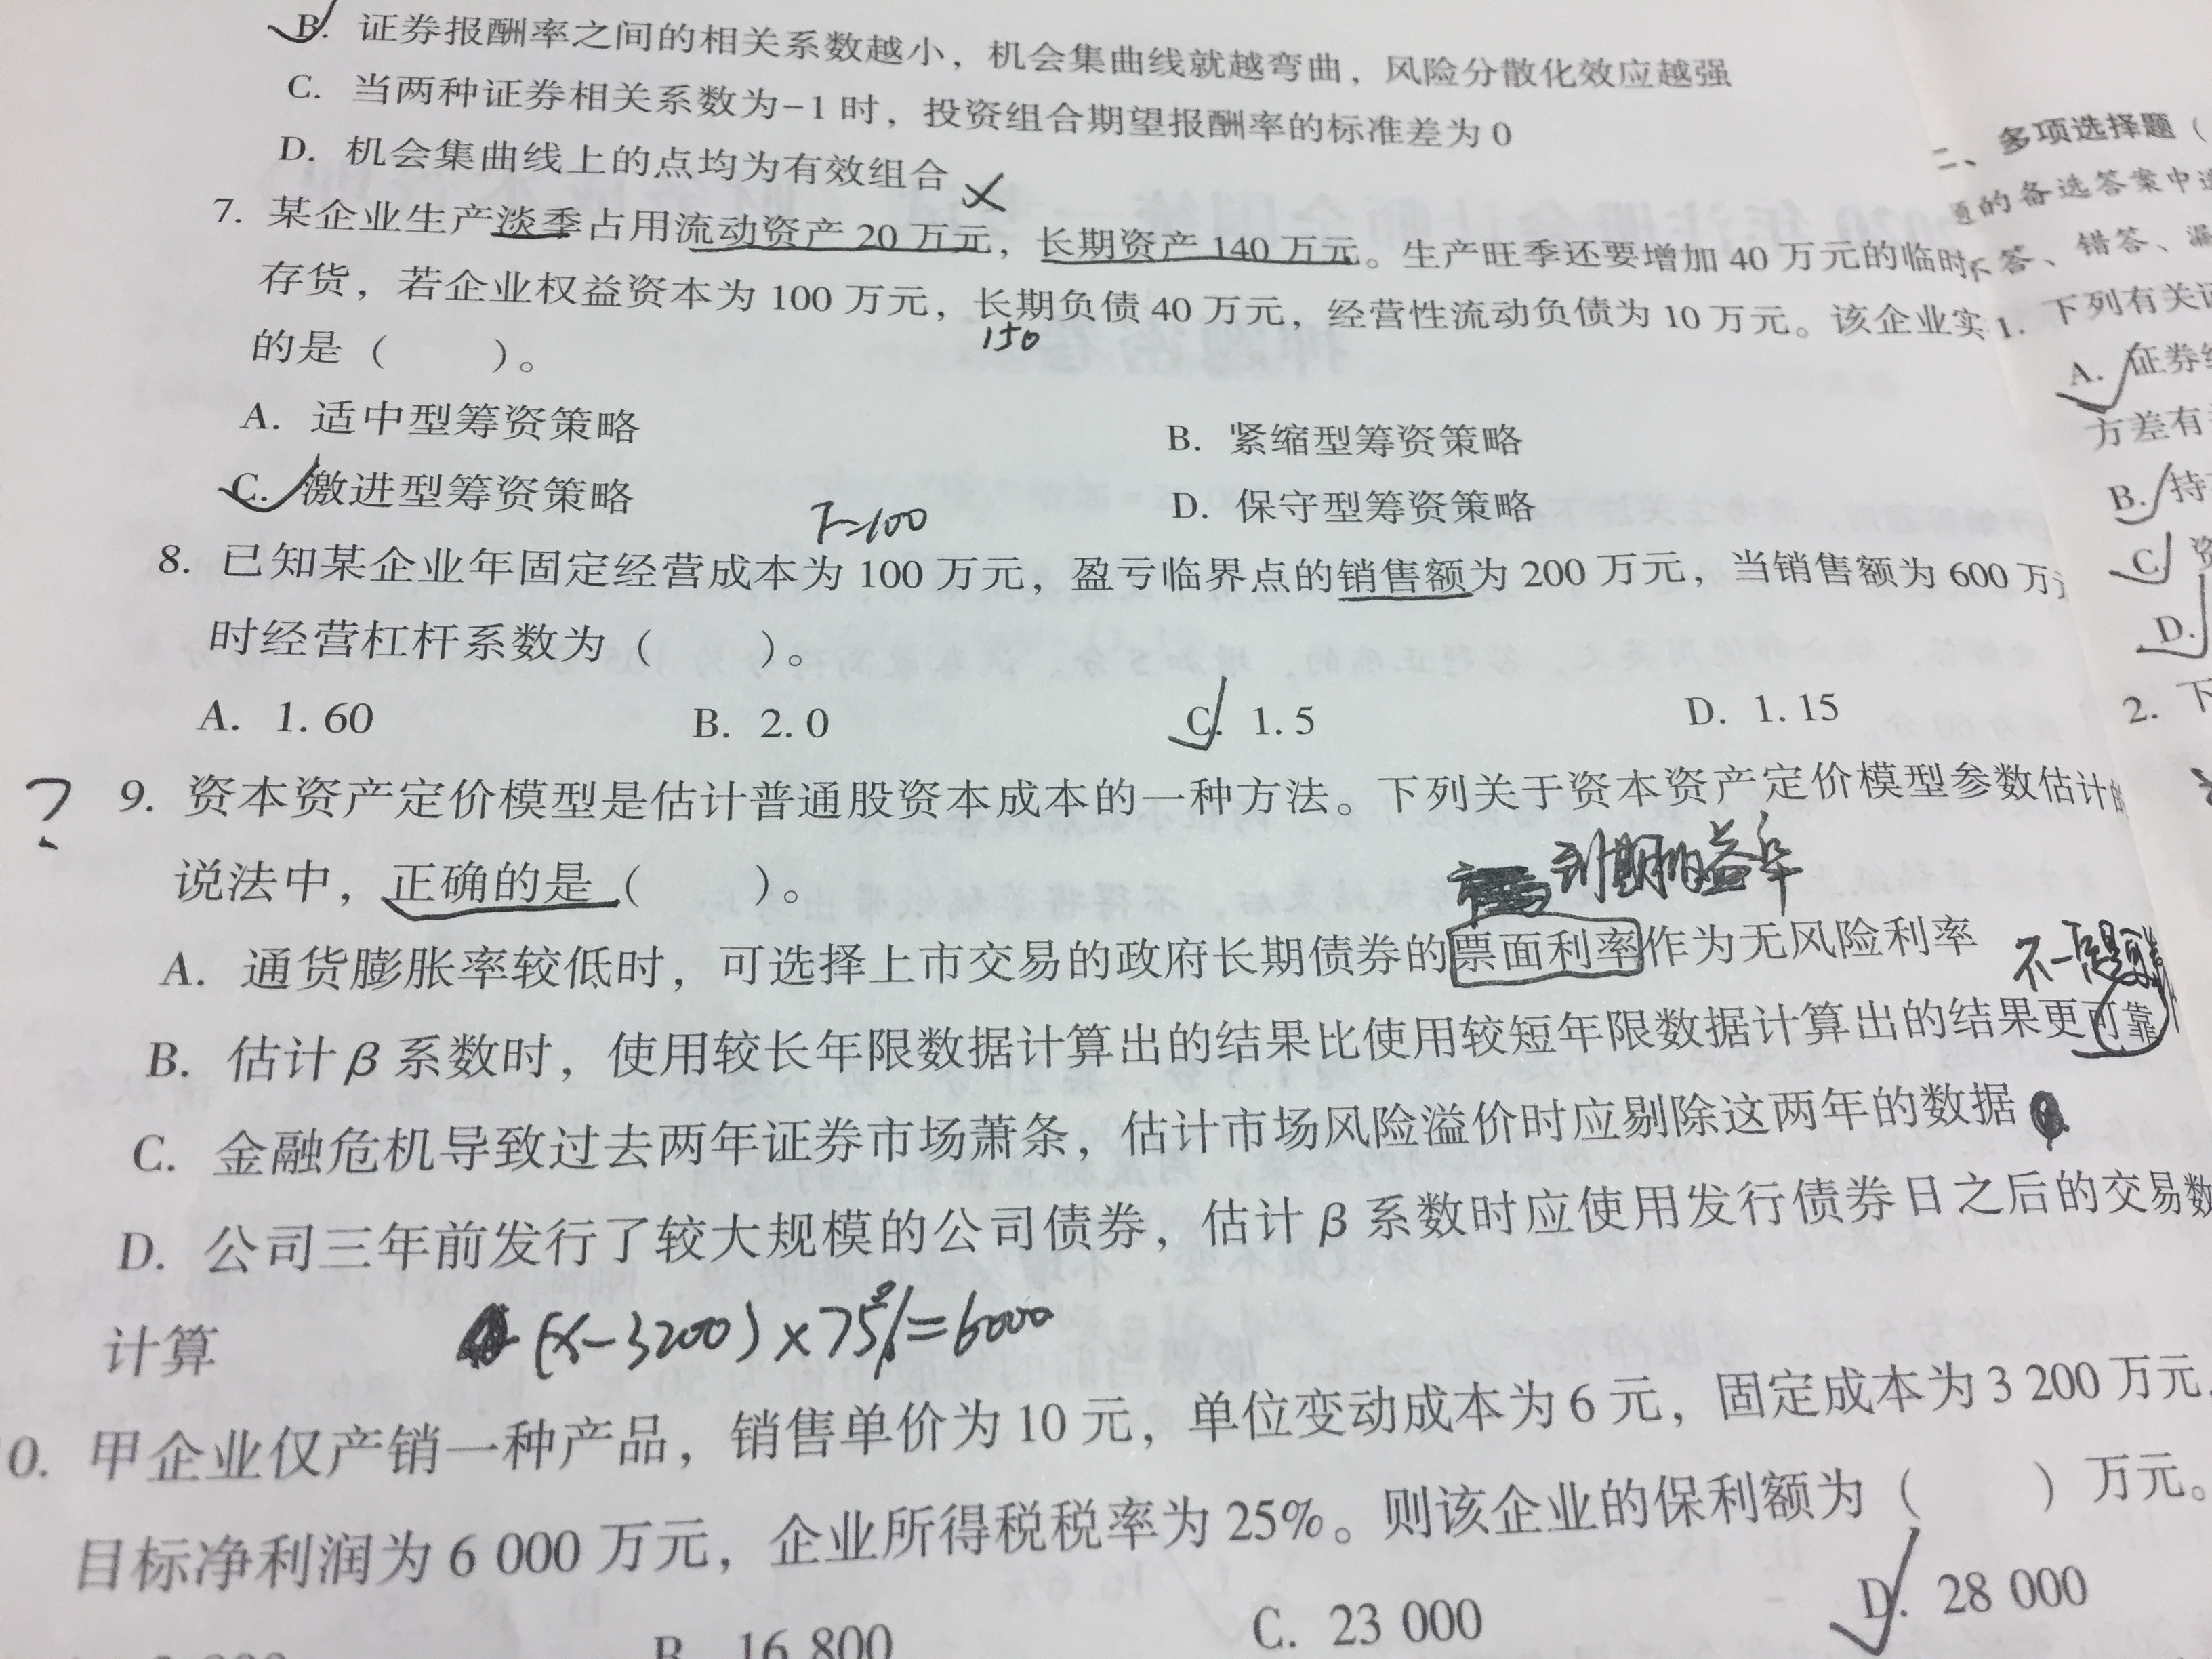 B. 证券报酬率之间的相关系数越小，机会集曲线就越弯曲，风险分散化效应越强
C. 当两种证券相关系数为-1时，投资组合期望报酬率的标准差为0
D. 机会集曲线上的点均为有效组合
7. 某企业生产淡季占用流动资产20万元，长期资产140万元。生产旺季还要增加40万元的临时
存货，若企业权益资本为100万元，长期负债40万元，经营性流动负债为10万元。该企业实
150
的是（ ）。
A. 适中型筹资策略
B. 紧缩型筹资策略
C. 激进型筹资策略
D. 保守型筹资策略
F=100
8. 已知某企业年固定经营成本为100万元，盈亏临界点的销售额为200万元，当销售额为600万
时经营杠杆系数为（ ）。
A. 1.60
B. 2.0
C. 1.5
D. 1.15
? 9. 资本资产定价模型是估计普通股资本成本的一种方法。下列关于资本资产定价模型参数估计的
说法中，正确的是（ ）。
到期收益率
A. 通货膨胀率较低时，可选择上市交易的政府长期债券的票面利率作为无风险利率
不一定
B. 估计β系数时，使用较长年限数据计算出的结果比使用较短年限数据计算出的结果更可靠
C. 金融危机导致过去两年证券市场萧条，估计市场风险溢价时应剔除这两年的数据
D. 公司三年前发行了较大规模的公司债券，估计β系数时应使用发行债券日之后的交易数
计算
(x-3200)×75%=6000
0. 甲企业仅产销一种产品，销售单价为10元，单位变动成本为6元，固定成本为3 200万元，
目标净利润为6 000万元，企业所得税税率为25%。则该企业的保利额为（ ）万元。
B. 16 800
C. 23 000
D. 28 000
二、多项选择题（
的备选答案中
答、错答、漏
1. 下列有关
A. 证券
方差有
B. 持
C. 资
D.
2. 下